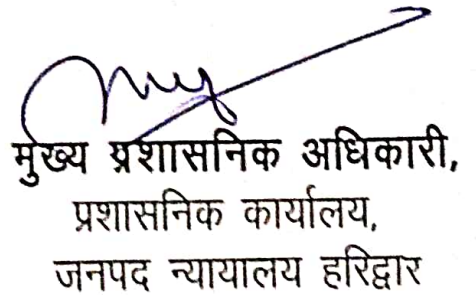 मुख्य प्रशासनिक अधिकारी,
प्रशासनिक कार्यालय,
जनपद न्यायालय हरिद्वार